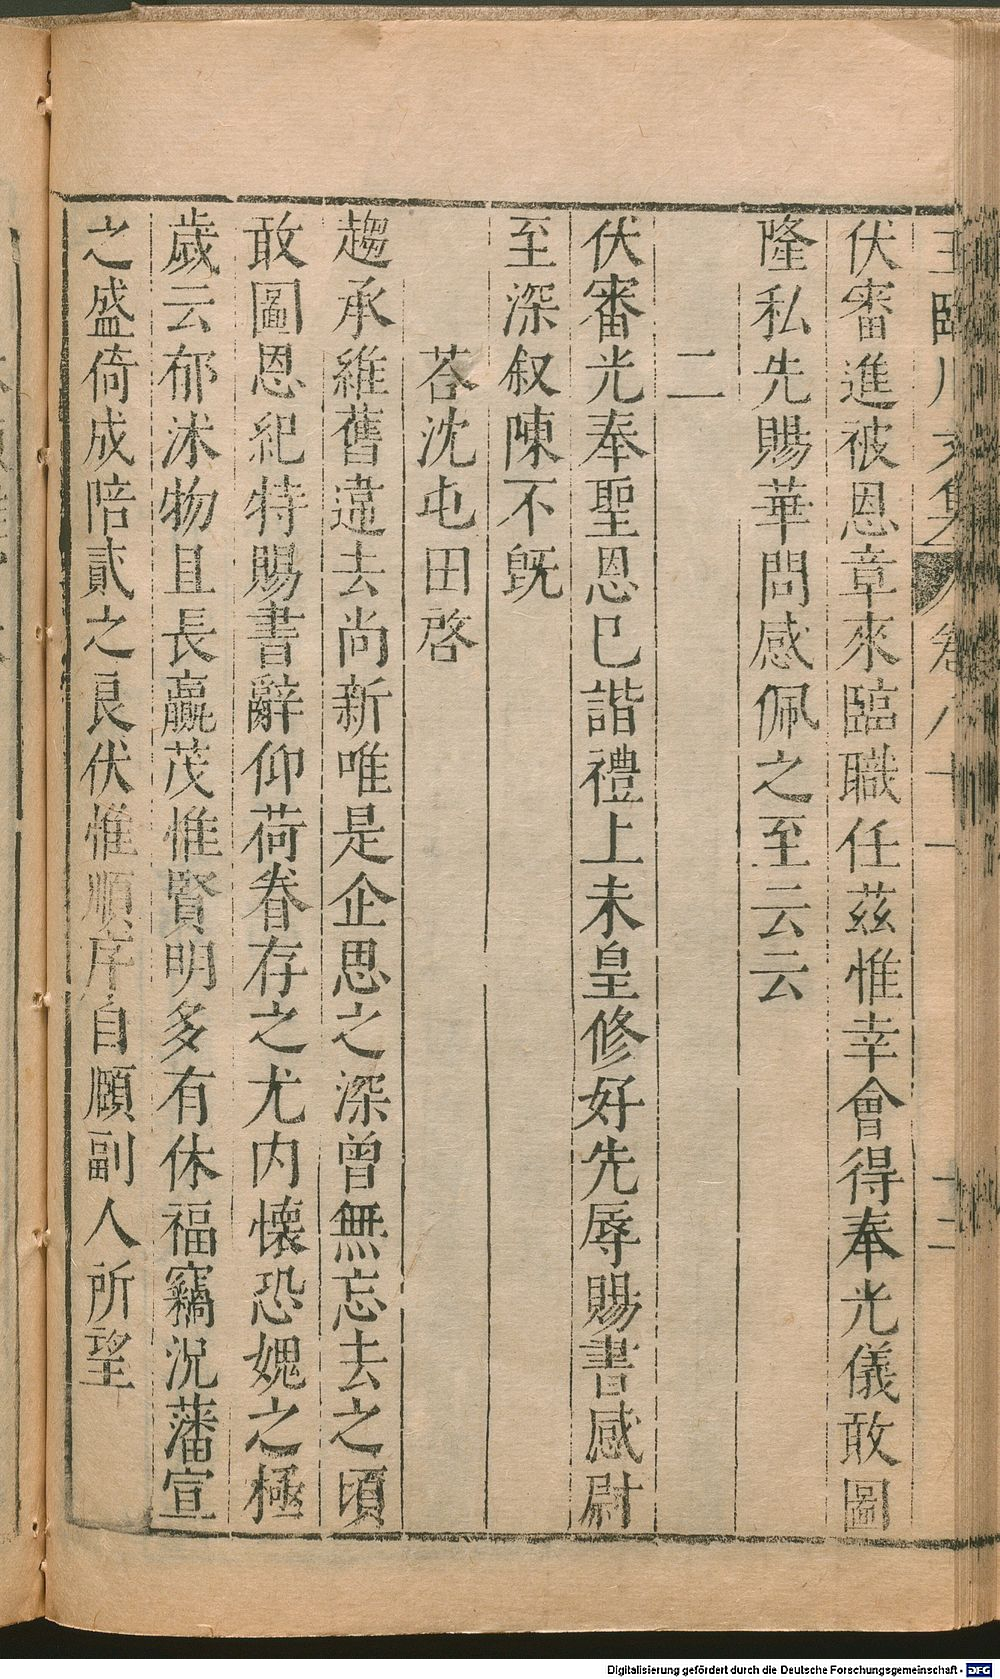 王臨川文集 卷八十一 十二
伏審進被恩章來臨職任茲惟幸會得奉光儀敢圖
隆私先賜華問感佩之至云云
二
伏審光奉聖恩已諧禮上未皇修好先辱賜書感尉
至深叙陳不旣
荅沈屯田啓
趨承維舊違去尚新唯是企思之深曾無忘去之頃
敢圖恩紀特賜書辭仰荷眷存之尤内懷恐媿之極
歲云郁沭物且長贏茂惟賢明多有休福竊況藩宣
之盛倚成陪貳之良伏惟順序自頤副人所望
Digitalisierung gefördert durch die Deutsche Forschungsgemeinschaft - DFG